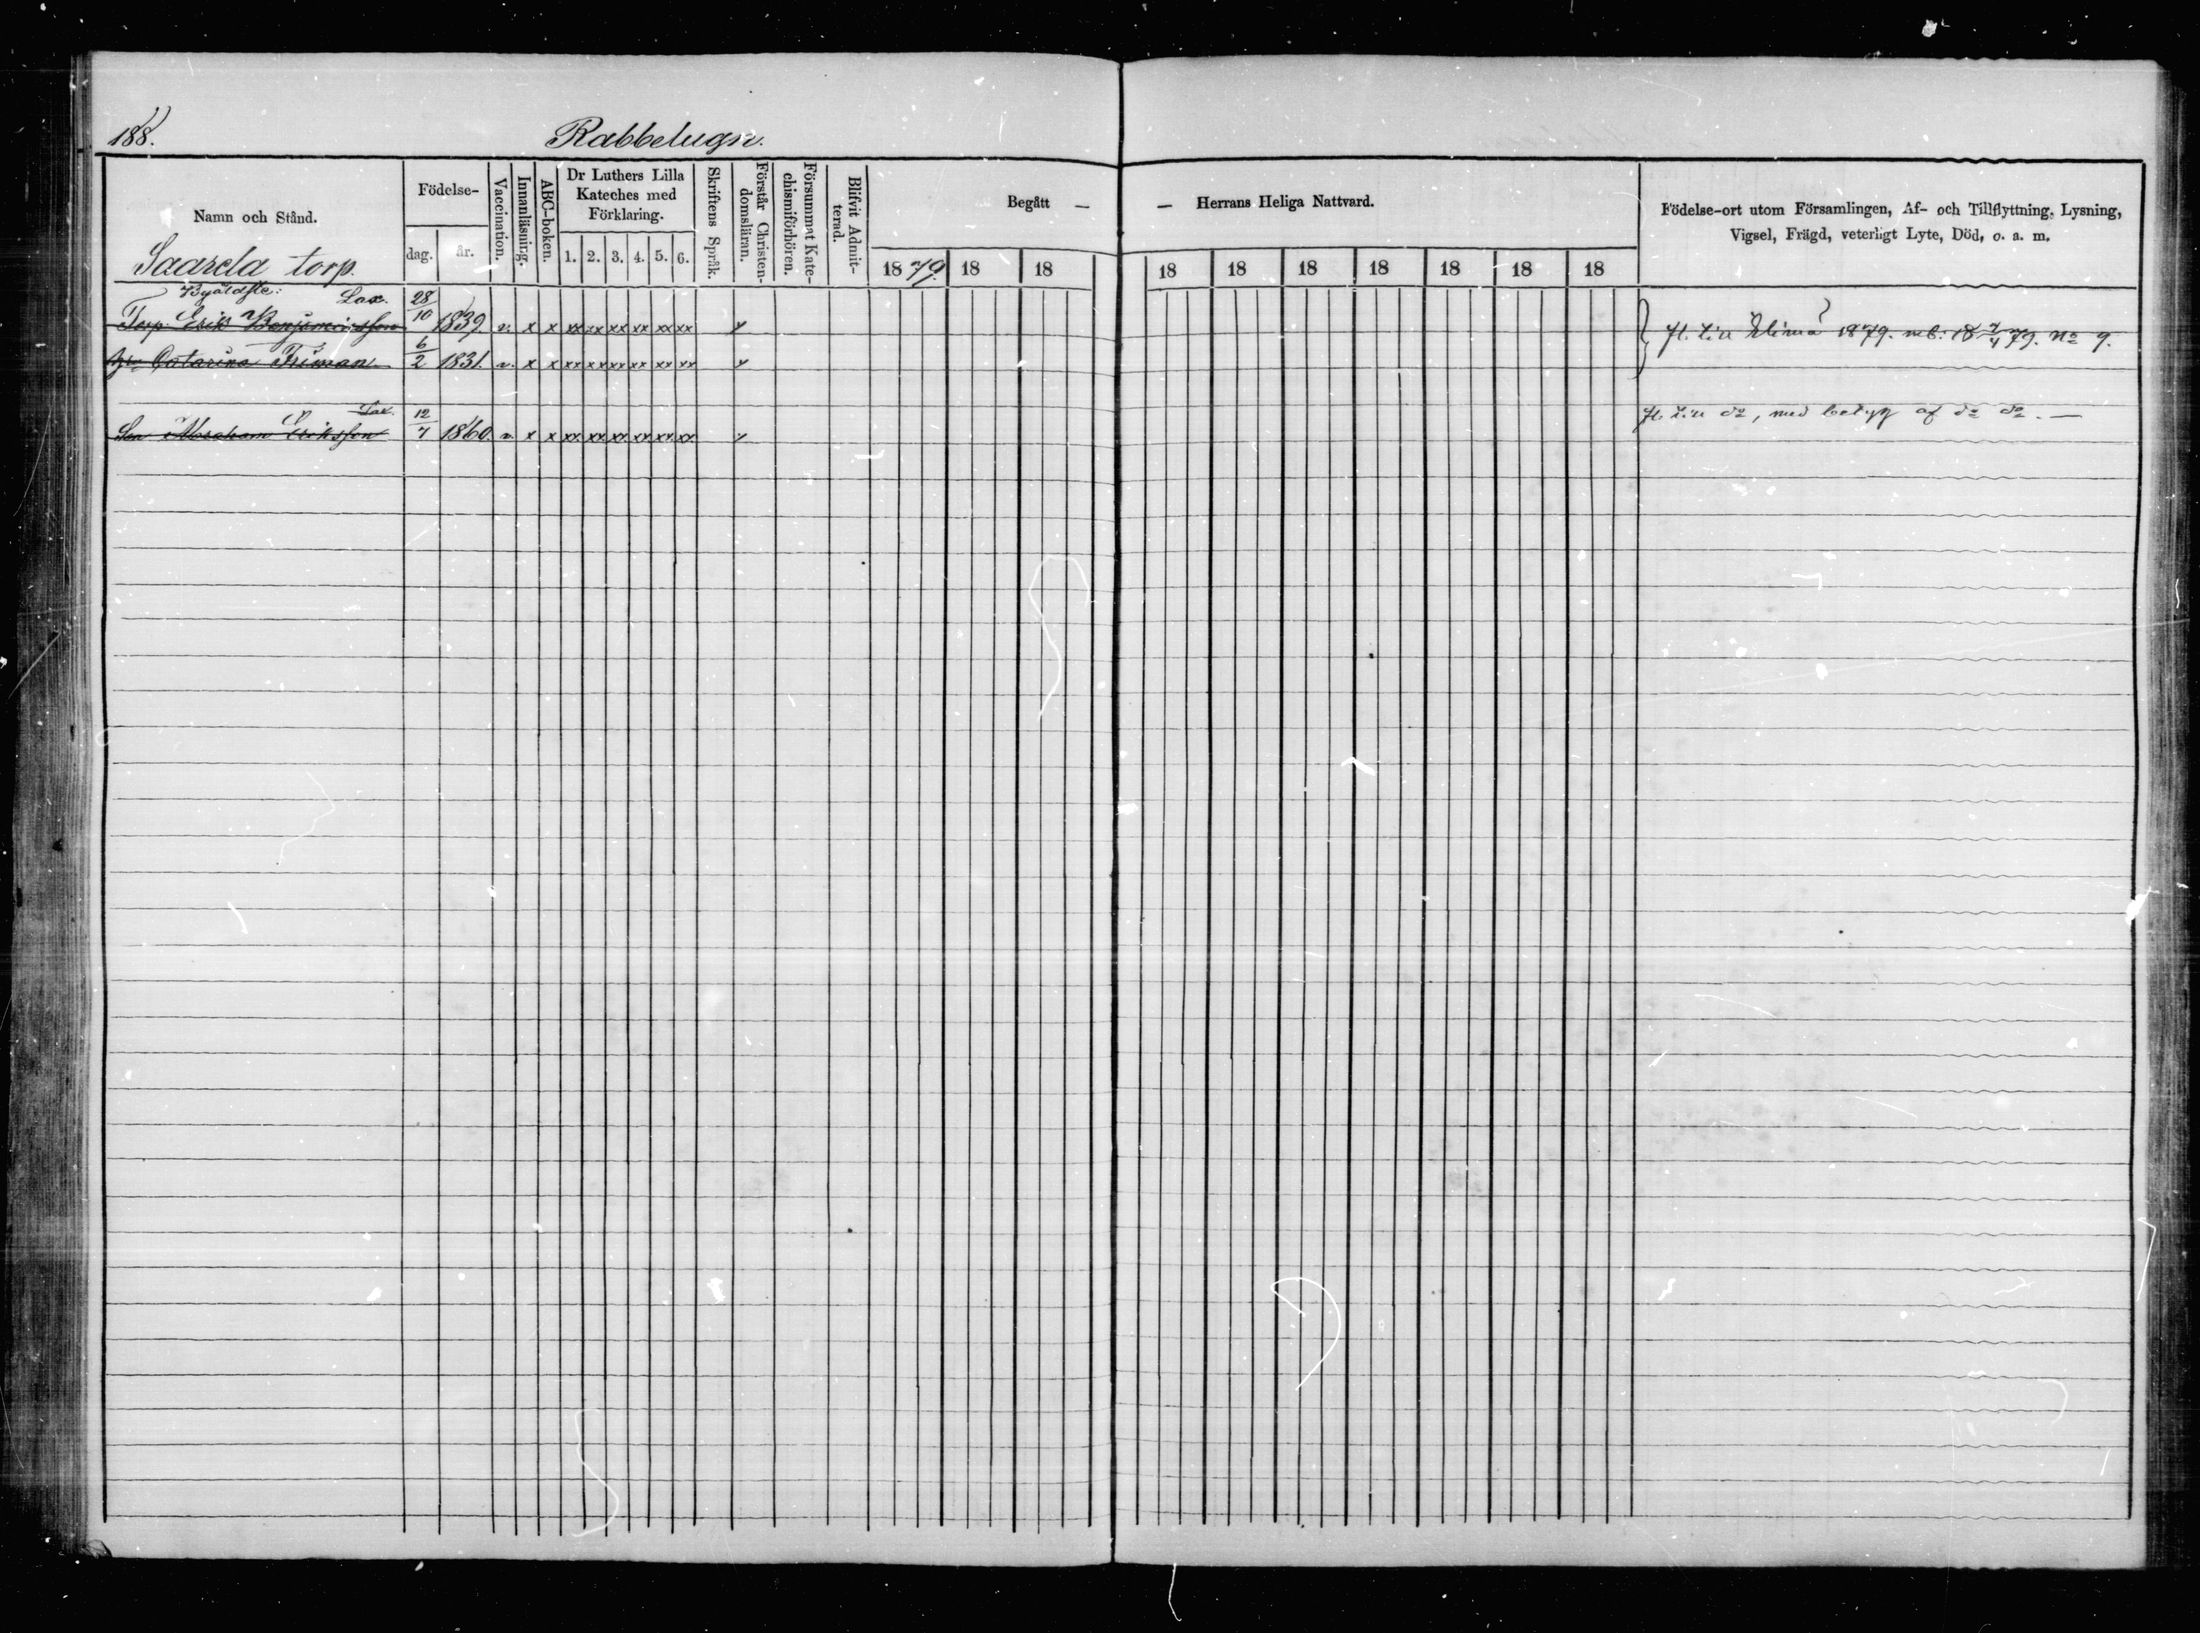 188.
Rabbelugn.
Namn och Stånd.
Födelse-
dag. år.
Vaccination.
Innanläsning.
ABC-boken.
Dr Luthers Lilla
Kateches med
Förklaring.
1. 2. 3. 4. 5. 6.
Skriftens Språk.
Förstår Christen-
domsläran.
Försummat Kate-
chismiförhören.
Blifvit Admit-
terad.
Begått —
— Herrans Heliga Nattvard.
1879. 18 18 18 18 18 18 18 18 18
Födelse-ort utom Församlingen, Af- och Tillflyttning, Lysning,
Vigsel, Frägd, veterligt Lyte, Död, o. a. m.
Saarela torp.
Byäldste: Lax.
Torp. Erik Benjaminsson 28/10 1839. v. x x xx xx xx xx xx xx x fl. till Elimä 1879. mb. 18 7/4 79. No 9.
Catarina Friman 6/2 1831. v. x x xx xx xx xx xx xx x
Lax.
Son Abraham Eriksson 12/7 1860. v. x x xx xx xx xx xx xx x fl. till do, med betyg af do do. —